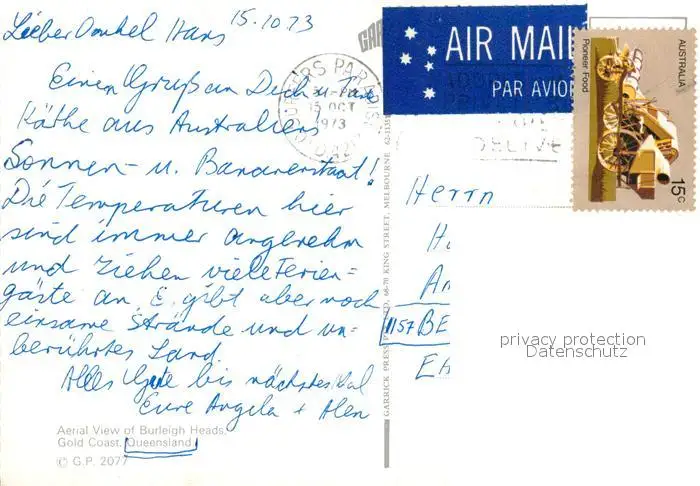 Lieber Onkel Hans 15.10.73
Einen Gruß an Dich u. Tante
Käthe aus Australiens
Sonnen- u. Bananenstaat!
Die Temperaturen hier
sind immer angenehm
und ziehen viele Ferien=
gäste an. Es gibt aber noch
einsame Strände und un=
berührtes Land.
Alles Gute bis nächstes Mal
Eure Angela + Alen
Aerial View of Burleigh Heads,
Gold Coast, Queensland.
© G.P. 2077
GARRICK PRESS PTY. LTD, 66-70 KING STREET, MELBOURNE
15 OCT
1973
AIR MAIL
PAR AVION
AUSTRALIA
Pioneer Food
15c
Herrn
H
A
1157 BE
privacy protection
Datenschutz